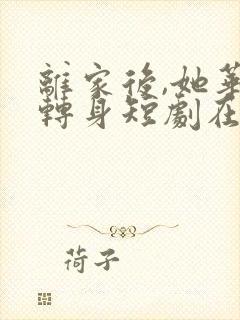 離家後,她華
轉身短劇在
荷子